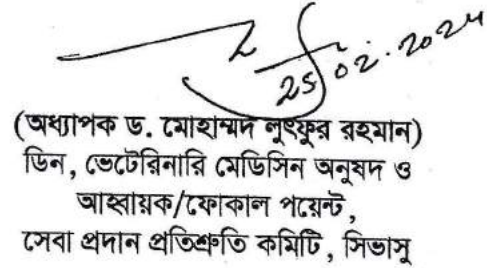 25.02.2024
(অধ্যাপক ড. মোহাম্মদ লুৎফুর রহমান)
ডিন, ভেটেরিনারি মেডিসিন অনুষদ ও
আহ্বায়ক/ফোকাল পয়েন্ট,
সেবা প্রদান প্রতিশ্রুতি কমিটি, সিভাসু